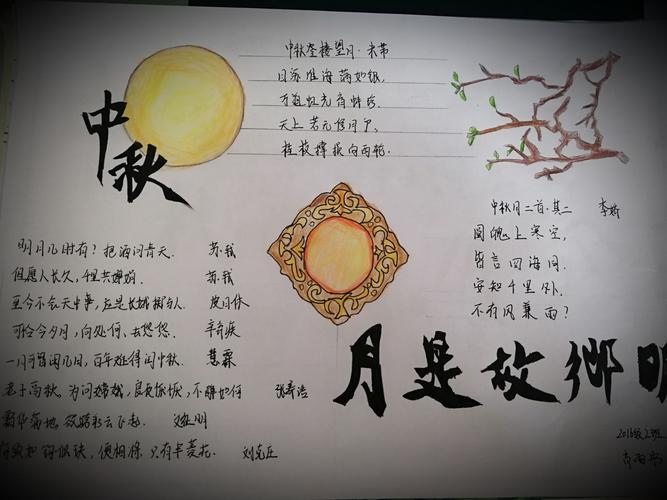 中秋
中秋登楼望月·米芾
目穷淮海满如银,
万道虹光育蚌珍.
天上若无修月户,
桂枝撑损向西轮.
中秋月二首·其二 李峤
圆魄上寒空,
皆言四海同.
安知千里外,
不有风兼雨?
明月几时有?把酒问青天. 苏轼
但愿人长久,千里共婵娟. 苏轼
至今不会天中事,应是嫦娥掷与人 皮日休
可怜今夕月,向处何、去悠悠. 辛弃疾
一月可曾闲几日,百年难得闲中秋. 慧霖
老子高秋。为问嫦娥,良夜恹恹,不醉如何 张养浩
满地,欲踏彩云飞起.
便相将,只有半菱花. 刘克庄
月是故鄉明
2016级2班